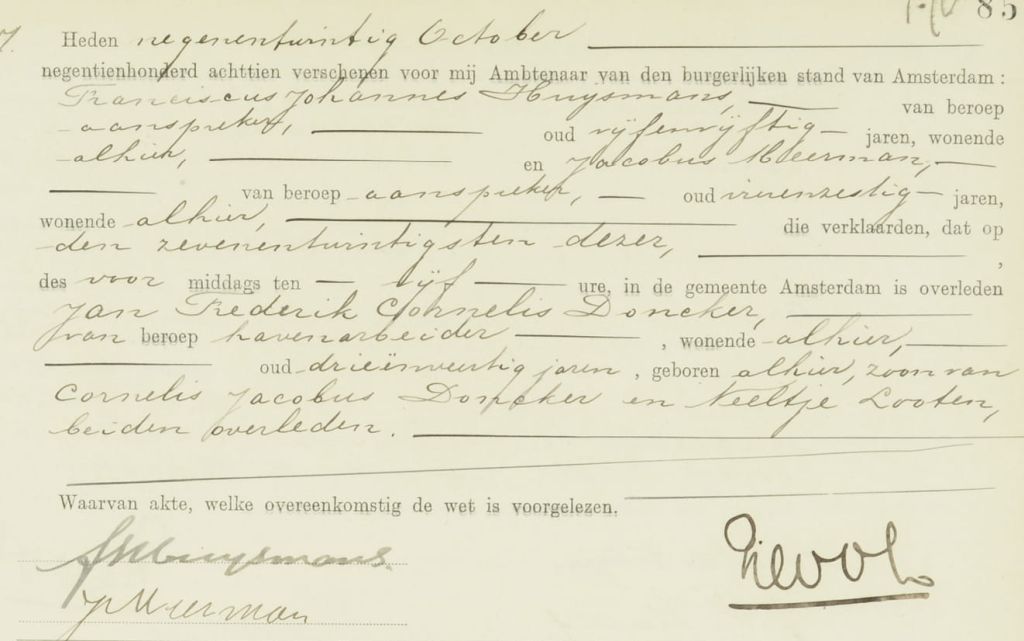 85
Heden negenentwintig October
negentienhonderd achttien verschenen voor mij Ambtenaar van den burgerlijken stand van Amsterdam :
Franciscus Johannes Huysmans, van beroep
aanspreker, oud vijfenvijftig jaren, wonende
alhier, en Jacobus Meerman,
van beroep aanspreker, oud vierenzestig jaren,
wonende alhier, die verklaarden, dat op
den zevenentwintigsten dezer, ,
des voor middags ten vijf ure, in de gemeente Amsterdam is overleden
Jan Frederik Cornelis Doncker,
van beroep havenarbeider , wonende alhier,
oud drieënveertig jaren , geboren alhier, zoon van
Cornelis Jacobus Doncker en Neeltje Looten,
beiden overleden.
Waarvan akte, welke overeenkomstig de wet is voorgelezen.
FJHuysmans.
J Meerman